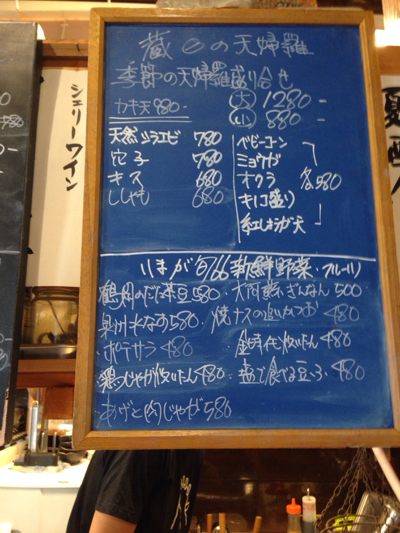 蔵の天婦羅
季節の天婦羅盛り合せ
大 1280-
小 880-
カキ天 980-
天然シラエビ 780
穴子 780
キス 680
ししゃも 680
ベビーコーン
ミョウガ
オクラ 各580
キノコ盛り
紅しょうが天
いまが旬!新鮮野菜・フルーツ
だだ茶豆 580
ぎんなん 500
水なす 580
焼ナスの 480
ポテサラ 480
480
鶏つじゃが炊いたん 480
塩で食べる豆ふ 480
あげと肉じゃが 580
シェリーワイン
夏